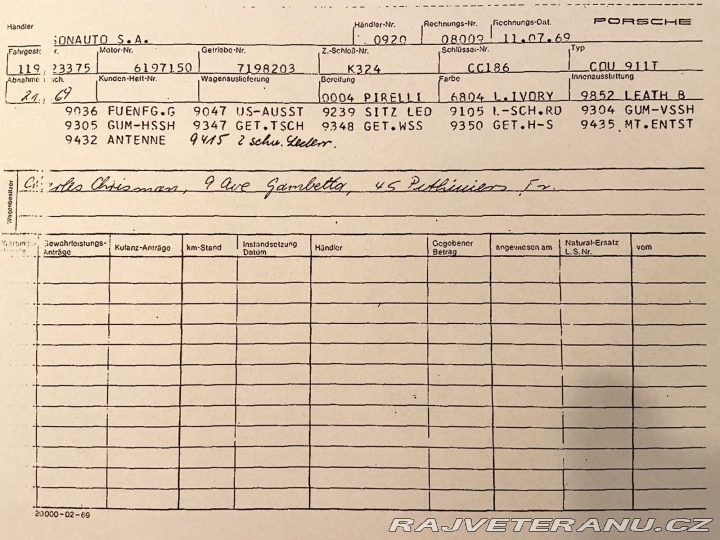 Händler Händler-Nr. Rechnungs-Nr. Rechnungs-Dat. PORSCHE
SONAUTO S.A. 0920 08009 11.07.69
Fahrgest. Nr. Motor-Nr. Getriebe-Nr. Z.-Schloß-Nr. Schlüssel-Nr. Typ
119 23375 6197150 7198203 K324 CC186 COU 911T
Abnahme Kunden-Heft-Nr. Wagenauslieferung Bereifung Farbe Innenausstattung
69 0004 PIRELLI 6804 L.IVORY 9852 LEATH B
9036 FUENFG.G 9047 US-AUSST 9239 SITZ LED 9105 L-SCH.RD 9304 GUM-VSSH
9305 GUM-HSSH 9347 GET.TSCH 9348 GET.WSS 9350 GET.H-S 9435 MT.ENTST
9432 ANTENNE 9415 2 schw. Leder.
Wagenbesitzer
Charles Chrisman, 9 Ave Gambetta, 45 Pithiviers Fr.
Gewährleistungs- Anträge Kulanz-Anträge km-Stand Instandsetzung Datum Händler Gegebener Betrag angewiesen am Natural-Ersatz L.S.Nr. vom
20000-02-69
RAJVETERANU.CZ